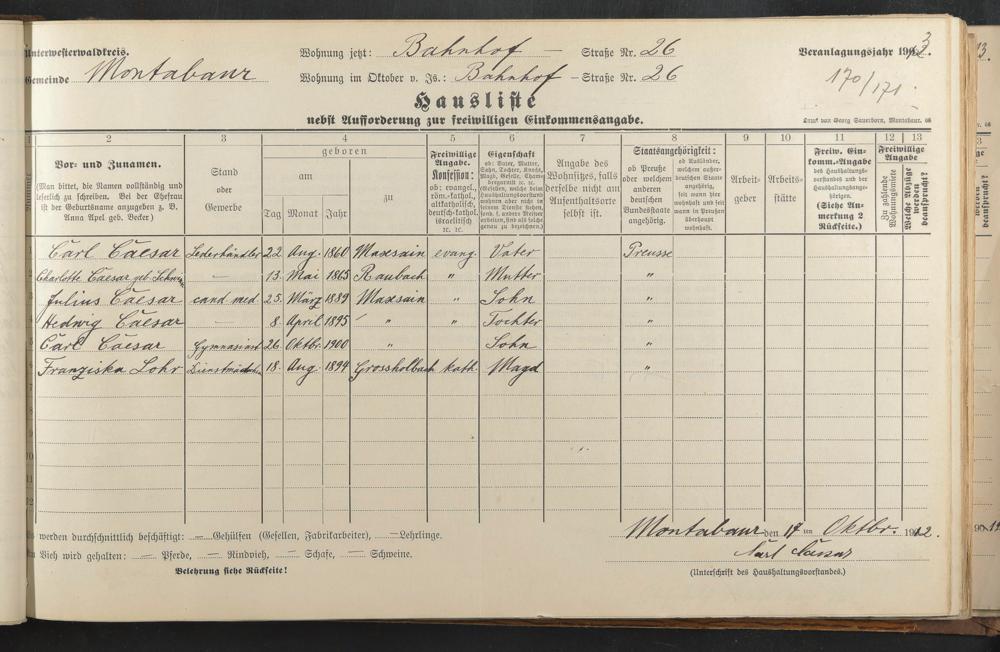 Unterwesterwaldkreis. Wohnung jetzt: Bahnhof – Straße Nr. 26 Veranlagungsjahr 1913.
Gemeinde Montabaur Wohnung im Oktober v. Js.: Bahnhof – Straße Nr. 26 170/171
Hausliste
nebst Aufforderung zur freiwilligen Einkommensangabe.
Druck von Georg Sauerborn, Montabaur.
2 3 4 5 6 7 8 9 10 11 12 13
Vor- und Zunamen.
(Man bittet, die Namen vollständig und leserlich zu schreiben. Bei der Ehefrau ist der Geburtsname anzugeben z. B. Anna Apel geb. Becker.)
Stand oder Gewerbe
geboren
am
Tag Monat Jahr
zu
Freiwillige Angabe. Konfession: ob: evangel., röm.-kathol., altkatholisch, deutsch-kathol., israelitisch ec. ec.
Eigenschaft
Angabe des Wohnsitzes, falls derselbe nicht am Aufenthaltsorte selbst ist.
Staatsangehörigkeit:
ob Preuße oder welchem anderen deutschen Bundesstaate angehörig.
ob Ausländer, welchem außerdeutschen Staate angehörig, seit wann hier wohnhaft und seit wann in Preußen überhaupt wohnhaft.
Arbeitgeber
Arbeitsstätte
Freiw. Einkomm.-Angabe des Haushaltungsvorstandes und der Haushaltungsangehörigen. (Siehe Anmerkung 2 Rückseite.)
Freiwillige Angabe
Zu zahlende Wohnungsmiete
Welche Abzüge werden beansprucht?
Carl Caesar Lederhändler 22. Aug. 1860 Maxsain evang. Vater Preusse
Charlotte Caesar geb. — 13. Mai 1865 Raubach " Mutter "
Julius Caesar cand med 25. März 1889 Maxsain " Sohn "
Hedwig Caesar — 8. April 1895 " " Tochter "
Carl Caesar Gymnasiast 26. Oktbr. 1900 " Sohn "
Franziska Lohr Dienstmädchen 18. Aug. 1894 Grossholbach kath. Magd "
Es werden durchschnittlich beschäftigt: — Gehülfen (Gesellen, Fabrikarbeiter), — Lehrlinge.
Montabaur den 17 ten Oktbr. 1912.
An Vieh wird gehalten: — Pferde, — Rindvieh, — Schafe, — Schweine.
Carl Caesar
Belehrung siehe Rückseite!
(Unterschrift des Haushaltungsvorstandes.)